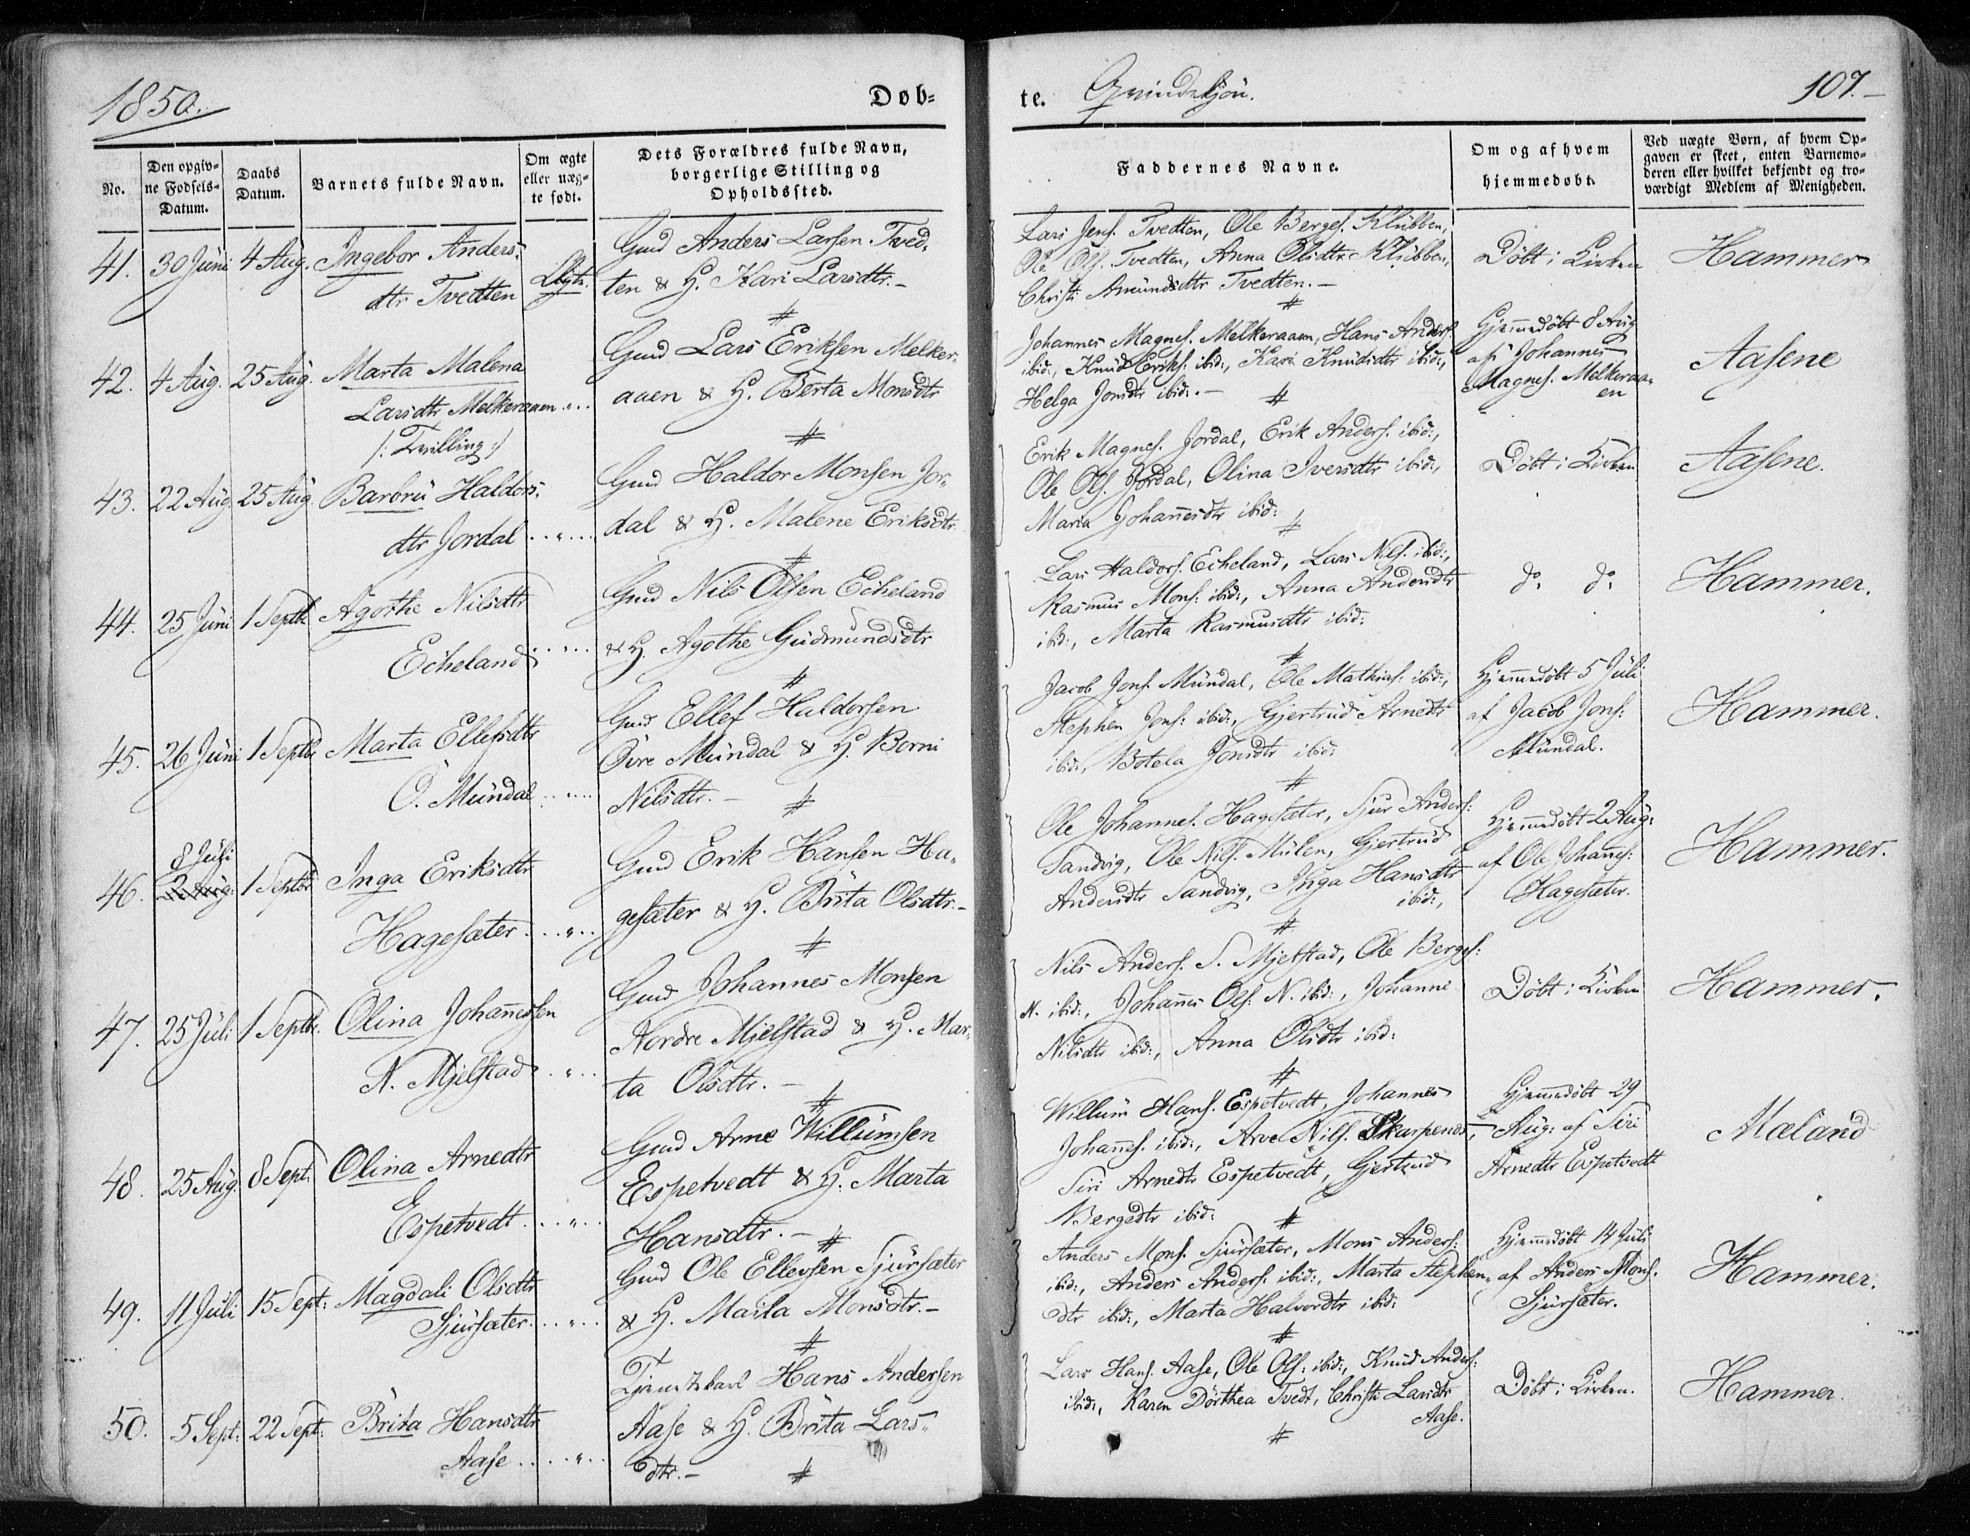 1850.
Døb-
te. Qvindekjön.
107.
No.
Den opgiv-
ne Fødsels-
Datum.
Daabs
Datum.
Barnets fulde Navn.
Om ægte
eller uæg-
te født.
Dets Forældres fulde Navn,
borgerlige Stilling og
Opholdssted.
Faddernes Navne.
Om og af hvem
hjemmedøbt.
Ved uægte Børn, af hvem Op-
gaven er skeet, enten Barnemo-
deren eller hvilket bekjendt og tro-
værdigt Medlem af Menigheden.
41. 30 Juni 4 Aug. Ingebor Anders-
dtr Tvedten
Gmd Anders Larsen Tved-
ten & H. Kari Larsdtr. –
Lars Jens. Tvedten, Ole Berges. Klubben,
Ole Ols. Tvedten, Anna Olsdtr Klubben,
Christi Amundsdtr Tvedten. –
Döbt i Kirken
Hammer
42. 4 Aug. 25 Aug. Marta Malena
Larsdtr Melkeraaen
/: Tvilling :/
Gmd Lars Eriksen Melker-
aaen & H. Berta Monsdtr
Johannes Magnes. Melkeraaen, Hans Anders.
ibid:, Knud Eriks: ibid:, Kari Knudsdtr ibid:,
Helga Jonsdtr ibid:. –
Hjemmedöbt 8 Aug
af Johannes
Magnes. Melkeraa-
en
Aasene
43. 22 Aug. 25 Aug. Barbru Haldors-
dtr Jordal
Gmd Haldor Monsen Jor-
dal & H. Malene Eriksdtr
Erik Magnes. Jordal, Erik Anders. ibid:,
Ole Ols. Jordal, Olina Iversdtr ibid:,
Maria Johannesdtr ibid:
Döbt i Kirken
Aasene.
44. 25 Juni 1 Septbr Agothe Nilsdtr
Echeland
Gmd Nils Olsen Echeland
& H. Agothe Gudmundsdtr
Lars Haldors. Echeland, Lars Nils. ibid:,
Rasmus Mons: ibid:, Anna Andersdtr
ibid:, Marta Rasmusdtr ibid:
do do
Hammer.
45. 26 Juni 1 Septbr Marta Ellefsdtr
Ö. Mundal
Gmd Ellef Haldorsen
Övre Mundal & H. Borni
Nilsdtr. –
Jacob Jons. Mundal, Ole Mathias. ibid:,
Stephen Jons: ibid:, Gjertrud Arnedtr
ibid:, Botela Jonsdtr ibid:
Hjemmedöbt 5 Juli
af Jacob Jons:
Mundal.
Hammer.
8 Juli
46. 2 Aug. 1 Septbr Inga Eriksdtr
Hagesæter
Gmd Erik Hansen Ha-
gesæter & H. Brita Olsdtr. –
Ole Johannes. Hagesæter, Sjur Anders:
Sandvig, Ole Nils. Mulen, Gjertrud
Andersdtr Sandvig, Inga Hansdtr
ibid:,
Hjemmedöbt 2 Aug:
af Ole Johanes:
Hagesæter.
Hammer.
47. 25 Juli 1 Septbr. Olina Johanessen
N. Mjelstad
Gmd Johannes Monsen
Nordre Mjelstad & H. Mar-
ta Olsdtr. –
Nils Anders. S. Mjelstad, Ole Berges:
N. ibid:, Johanes Ols. N. ibid:, Johanne
Nilsdtr ibid:, Anna Olsdtr ibid:
Döbt i Kirken
Hammer.
48. 25 Aug. 8 Sept. Olina Arnedtr
Espetvedt
Gmd Arne Willumsen
Espetvedt & H. Marta
Hansdtr. –
Willum Hans. Espetvedt, Johannes
Johanes. ibid:, Arve Nils. Skarpenes,
Siri Arnedtr Espetvedt, Gjertrud
Bergedtr ibid:
Hjemmedöbt 29
Aug: af Siri
Arnedtr Espetvedt
Mæland
49. 11 Juli 15 Sept: Magdali Olsdtr
Sjursæter
Gmd Ole Ellevsen Sjursæter
& H. Marta Monsdtr. –
Anders Mons. Sjursæter, Mons Anders:
ibid:, Anders Anders. ibid:, Marta Stephen-
dtr ibid:, Marta Halvordtr ibid:
Hjemmedöbt 14 Juli
af Anders Mons.
Sjursæter.
Hammer.
50. 5 Sept: 22 Sept: Brita Hansdtr
Aase
Hans Andersen
Aase & H. Brita Lars-
dtr. –
Lars Hans. Aase, Ole Ols: ibid:, Knud Anders:
ibid:, Karen Dorthea Tvedt, Christi Larsdtr
Aase.
Döbt i Kirken.
Hammer.